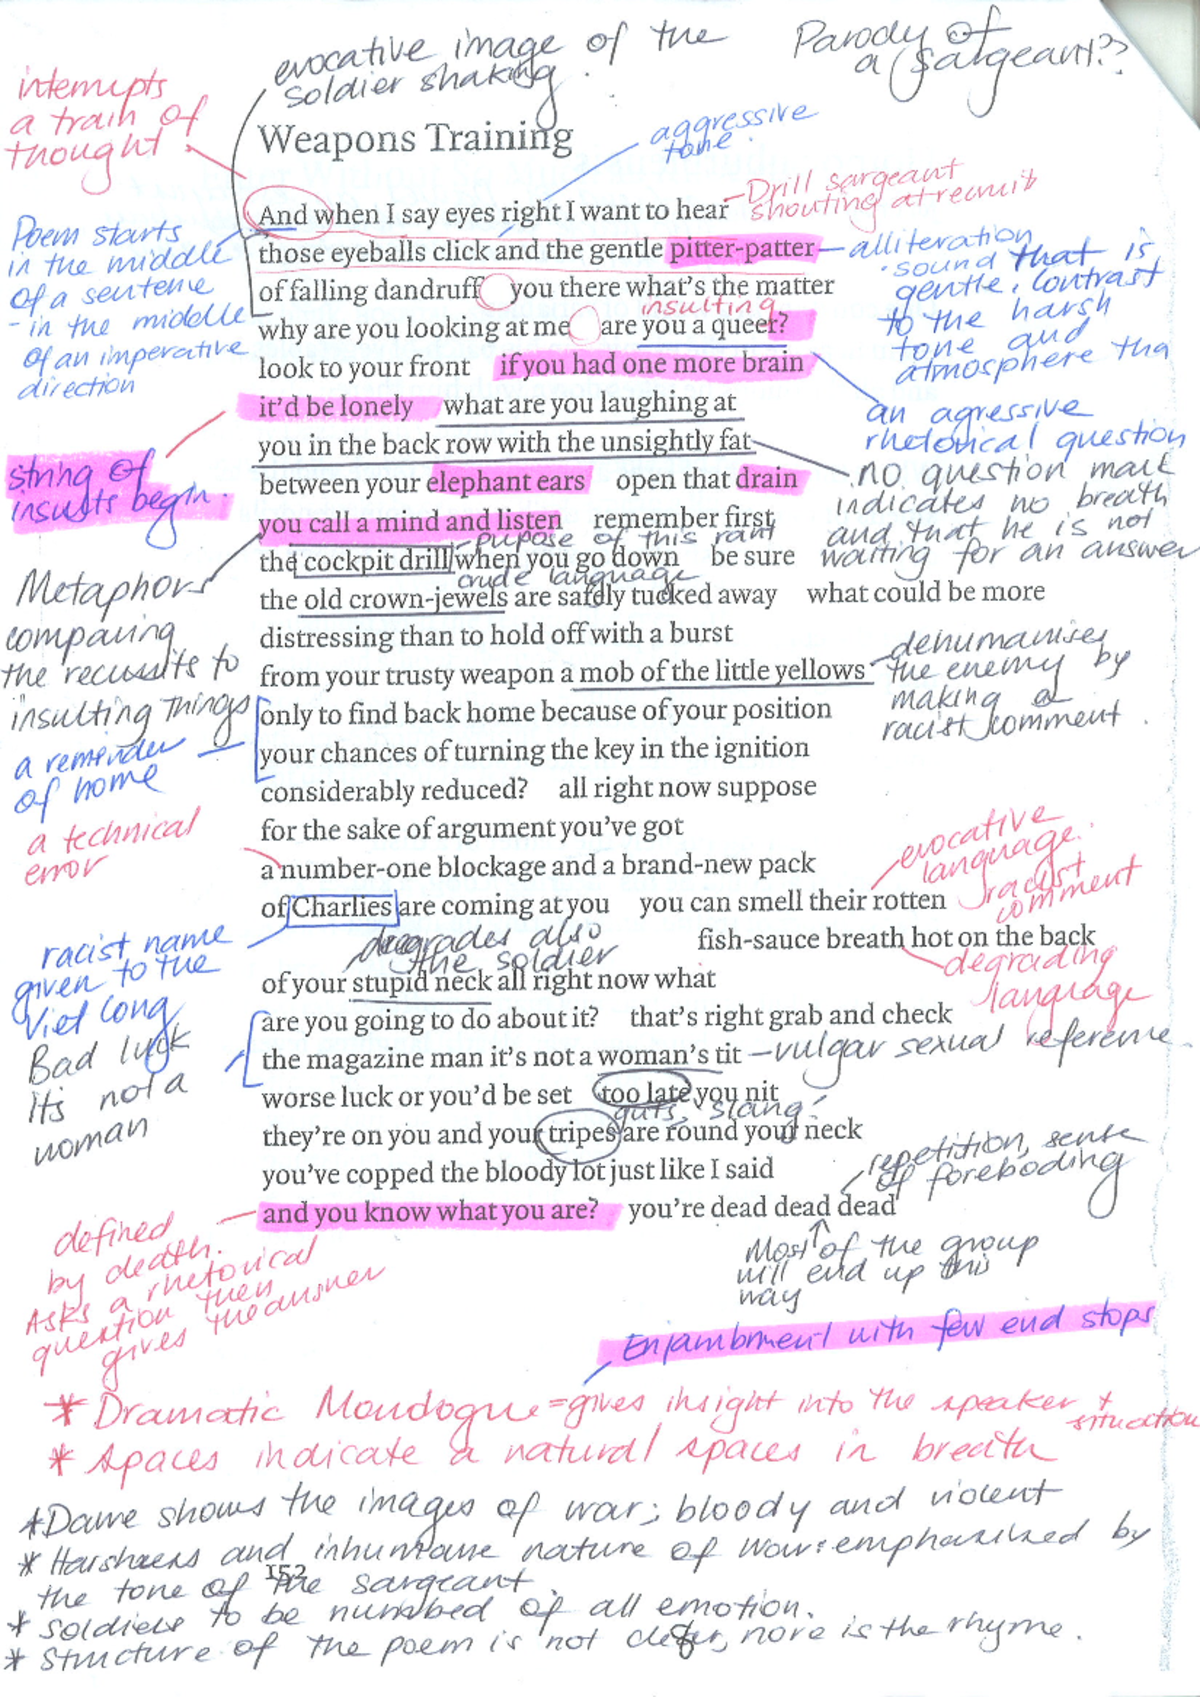 evocative image of the
soldier shaking.
Parody of
a sargeant??
interrupts
a train of
thought.
Weapons Training
aggressive
tone.
Drill sargeant
shouting at recruit
And when I say eyes right I want to hear
those eyeballs click and the gentle pitter-patter
of falling dandruff you there what's the matter
insulting
why are you looking at me are you a queer?
look to your front if you had one more brain
it'd be lonely what are you laughing at
you in the back row with the unsightly fat
between your elephant ears open that drain
you call a mind and listen remember first
pupose of this rant
the cockpit drill when you go down be sure
crude language
the old crown-jewels are safely tucked away what could be more
distressing than to hold off with a burst
from your trusty weapon a mob of the little yellows
only to find back home because of your position
your chances of turning the key in the ignition
considerably reduced? all right now suppose
for the sake of argument you've got
a number-one blockage and a brand-new pack
of Charlies are coming at you you can smell their rotten
fish-sauce breath hot on the back
degrades also
the soldier
of your stupid neck all right now what
are you going to do about it? that's right grab and check
the magazine man it's not a woman's tit
worse luck or you'd be set too late you nit
guts, slang!
they're on you and your tripes are round your neck
you've copped the bloody lot just like I said
and you know what you are? you're dead dead dead
Poem starts
in the middle
of a sentence
- in the middle
of an imperative
direction
string of
insults begin.
Metaphors
comparing
the recussits to
insulting things
a reminder
of home
a technical
error
racist name
given to the
Viet Cong
Bad luck
its not a
woman
defined
by death.
Asks a rhetorical
question then
gives the answer
alliteration
sound that is
gentle, contrast
to the harsh
tone and
atmosphere tha
an agressive
rhetorical question
no question mark
indicates no breath
and that he is not
waiting for an answer
dehumanises
the enemy by
making a
racist comment.
evocative
language.
racist
comment
degrading
language
vulgar sexual reference.
repetition, sense
of foreboding
Most of the group
will end up this
way
Enjambment with few end stops
* Dramatic Monologue = gives insight into the speaker +
situation
* spaces indicate a natural spaces in breath
* Dawe shows the images of war; bloody and violent
* Harshness and inhumane nature of war: emphasized by
the tone of the sargeant.
152
* soldiers to be numbed of all emotion.
* structure of the poem is not clear, nore is the rhyme.